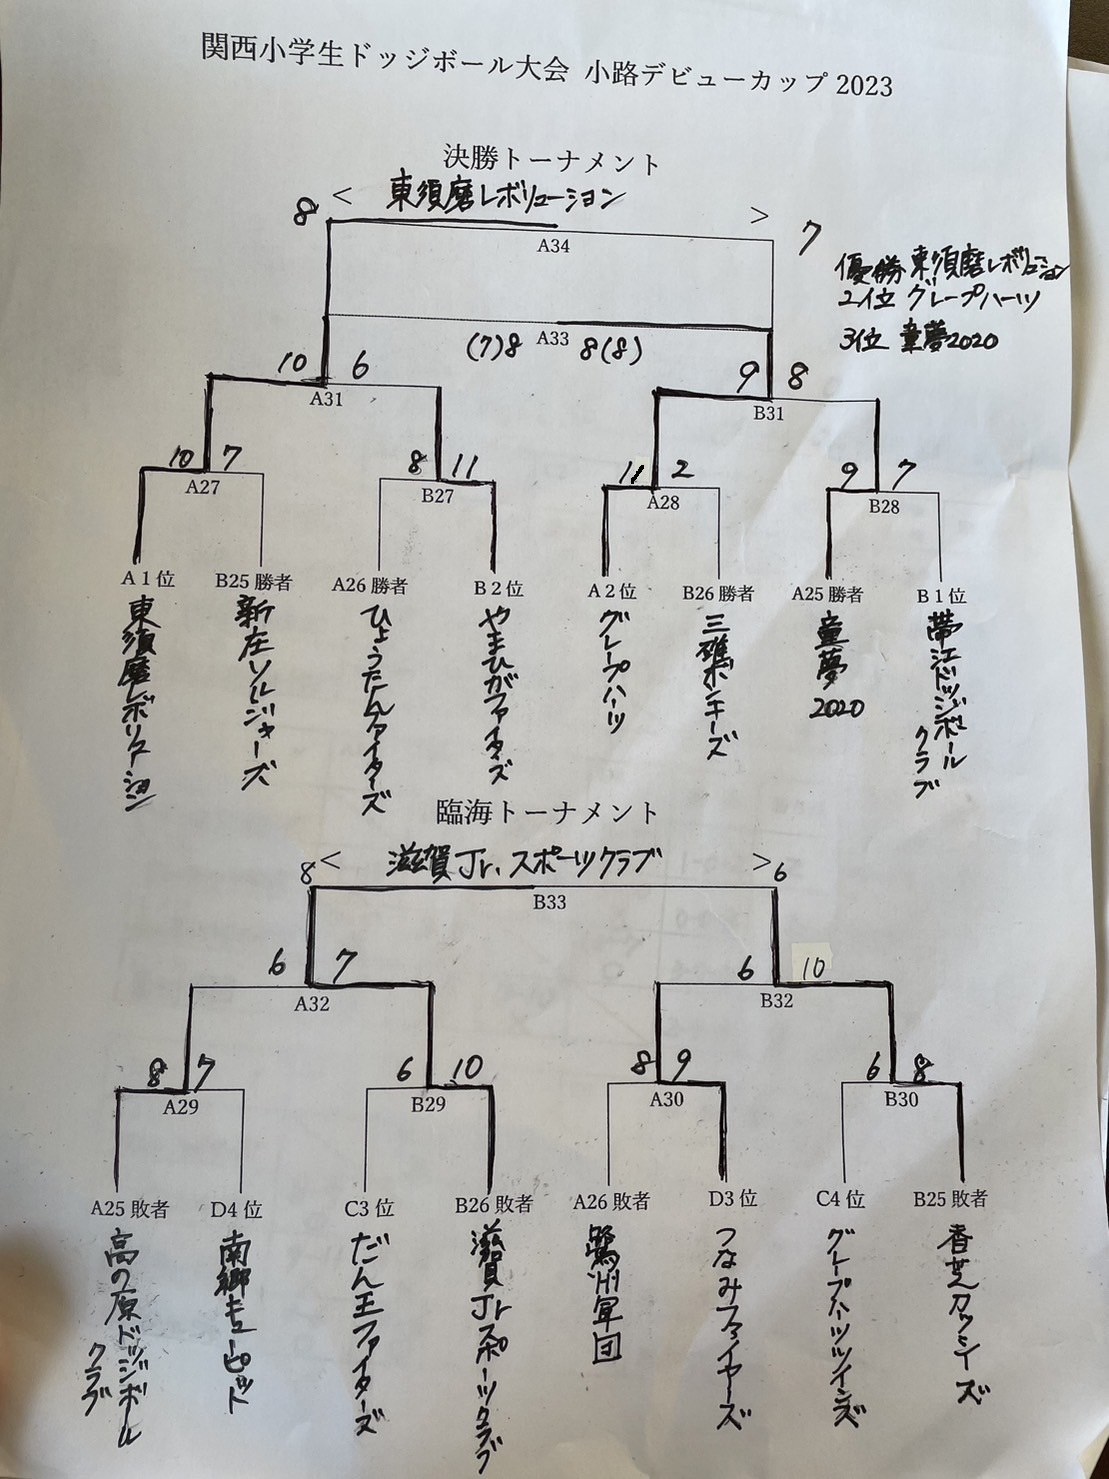 関西小学生ドッジボール大会 小路デビューカップ 2023
決勝トーナメント
8 < 東須磨レボリューション > 7
A34
優勝 東須磨レボリューション
2位 グレープハーツ
3位 童夢2020
(7)8 A33 8(8)
10 6 9 8
A31 B31
10 7 8 11 11 2 9 7
A27 B27 A28 B28
A1位 B25勝者 A26勝者 B2位 A2位 B26勝者 A25勝者 B1位
東須磨レボリューション
新庄ソルジャーズ
ひょうたんファイターズ
やまひがファイターズ
グレープハーツ
三碓ボンキーズ
童夢2020
帯江ドッジボールクラブ
臨海トーナメント
8 < 滋賀Jr.スポーツクラブ > 6
B33
6 7 6 10
A32 B32
8 7 6 10 8 9 6 8
A29 B29 A30 B30
A25敗者 D4位 C3位 B26敗者 A26敗者 D3位 C4位 B25敗者
高の原ドッジボールクラブ
南郷キューピット
だん王ファイターズ
滋賀Jrスポーツクラブ
鷺州軍団
つなみファイヤーズ
グレープハーツツインズ
香芝カッシーズ